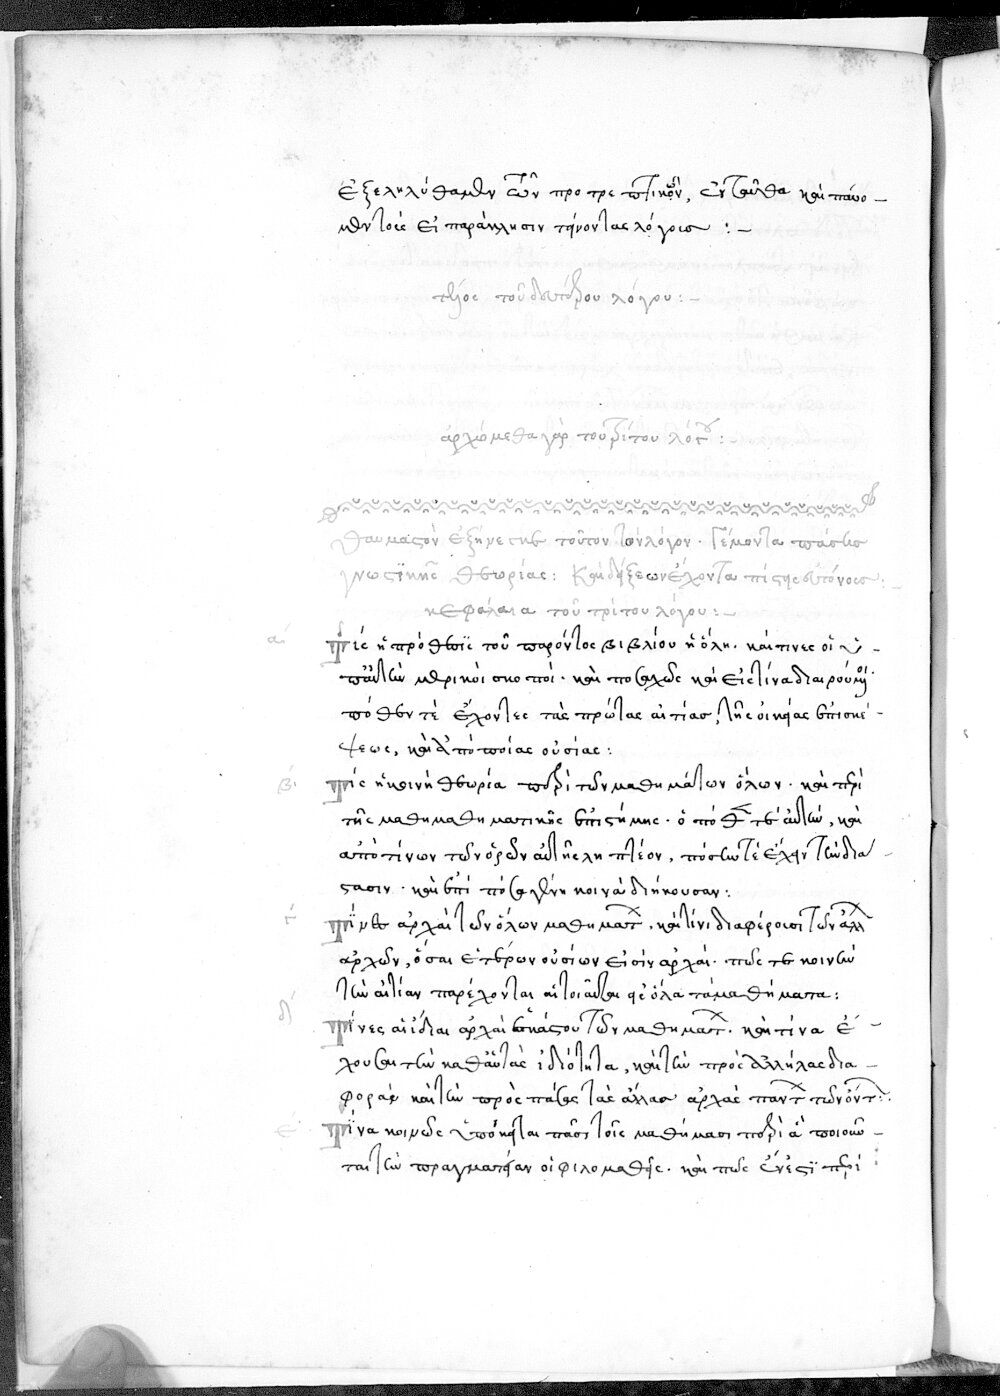 ἐξεληλύθαμεν τῶν προτρεπτικῶν, ἐνταῦθα καὶ παύο-
μεν τοὺς εἰς παράκλησιν τείνοντας λόγους :-
τέλος τοῦ δευτέρου λόγου :-
ἀρχώμεθα γὰρ τοῦ τρίτου λόγου :-
θαυμαστὸν ἐξήνεγκε τοῦτον τὸν λόγον. Γέμοντα πάσης
γνωστικῆς θεωρίας : Καὶ λέξεων ἔχοντα πίστης εὐτόνους :-
κεφάλαια τοῦ τρίτου λόγου :-
α΄ Τίς ἡ πρόθεσις τοῦ παρόντος βιβλίου ἡ ὅλη. καὶ τίνες οἱ ἐν
αὐτῷ μερικοὶ σκοποί. καὶ ποσαχῶς καὶ εἰς τίνα διαιρούμενοι.
πόθεν τὲ ἔχοντες τὰς πρώτας αἰτίας, τῆς οἰκείας ἐπισκέ-
ψεως, καὶ ἀπὸ ποίας οὐσίας :
β΄ Τίς ἡ κοινὴ θεωρία περὶ τῶν μαθημάτων ὅλων. καὶ περὶ
τῆς μαθηματικῆς ἐπιστήμης. ὁπόθεν τὲ αὐτὴν, καὶ
ἀπὸ τίνων τῶν ὅρων αὐτῆς ληπτέον, πόσην τὲ ἔχειν τὴν διά-
στασιν. καὶ ἐπὶ πόσα γένη κοινὰ διήκουσαν :
γ΄ Τίνες ἀρχαὶ τῶν ὅλων μαθημάτ. καὶ τίνι διαφέρουσι τῶν ἄλλ
ἀρχῶν, ὅσαι ἑτέρων οὐσίων εἰσὶν ἀρχαί. πῶς τε κοινὴν
τὴν αἰτίαν παρέχονται αἱ τοιαῦται εἰς ὅλα τὰ μαθήματα :
δ΄ Τίνες αἱ ἴδιαι ἀρχαὶ ἑκάστου τῶν μαθημάτ. καὶ τίνα ἔ-
χουσι τὴν καθ' αὑτὰς ἰδιότητα, καὶ τὴν πρὸς ἀλλήλας δια-
φοράν καὶ τὴν πρὸς πάσας τὰς ἄλλας ἀρχὰς πάντ τῶν ὄντ :
ε΄ Τίνα κοινῶς ὑπόκειται πᾶσι τοῖς μαθήμασι περὶ ἃ ποιοῦν-
ται τὴν πραγματείαν οἱ φιλομαθεῖς. καὶ πῶς ἔνεστι περὶ